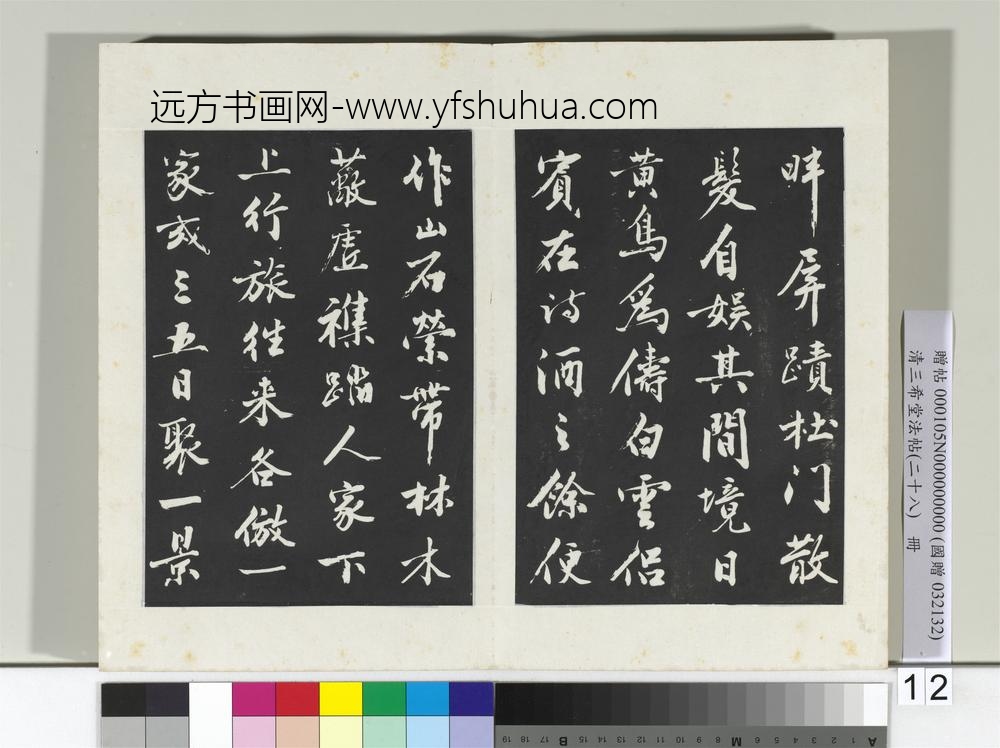 远方书画网-www.yfshuhua.com
畔屏蹟杜门散
髮自娱其間境日
黄鳥爲儔白雲侣
賓在诗酒之餘便
作山石縈帶林木
蔽虚襍踏人家下
上行旅往来各倣一
家或三五日聚一景
贈帖 000105N000000000 (國贈 032132)
清三希堂法帖(二十八) 冊
12
19 18 17 16 15 B 14 13 12 11 10 9 8 7 M 6 5 4 3 2 1 A